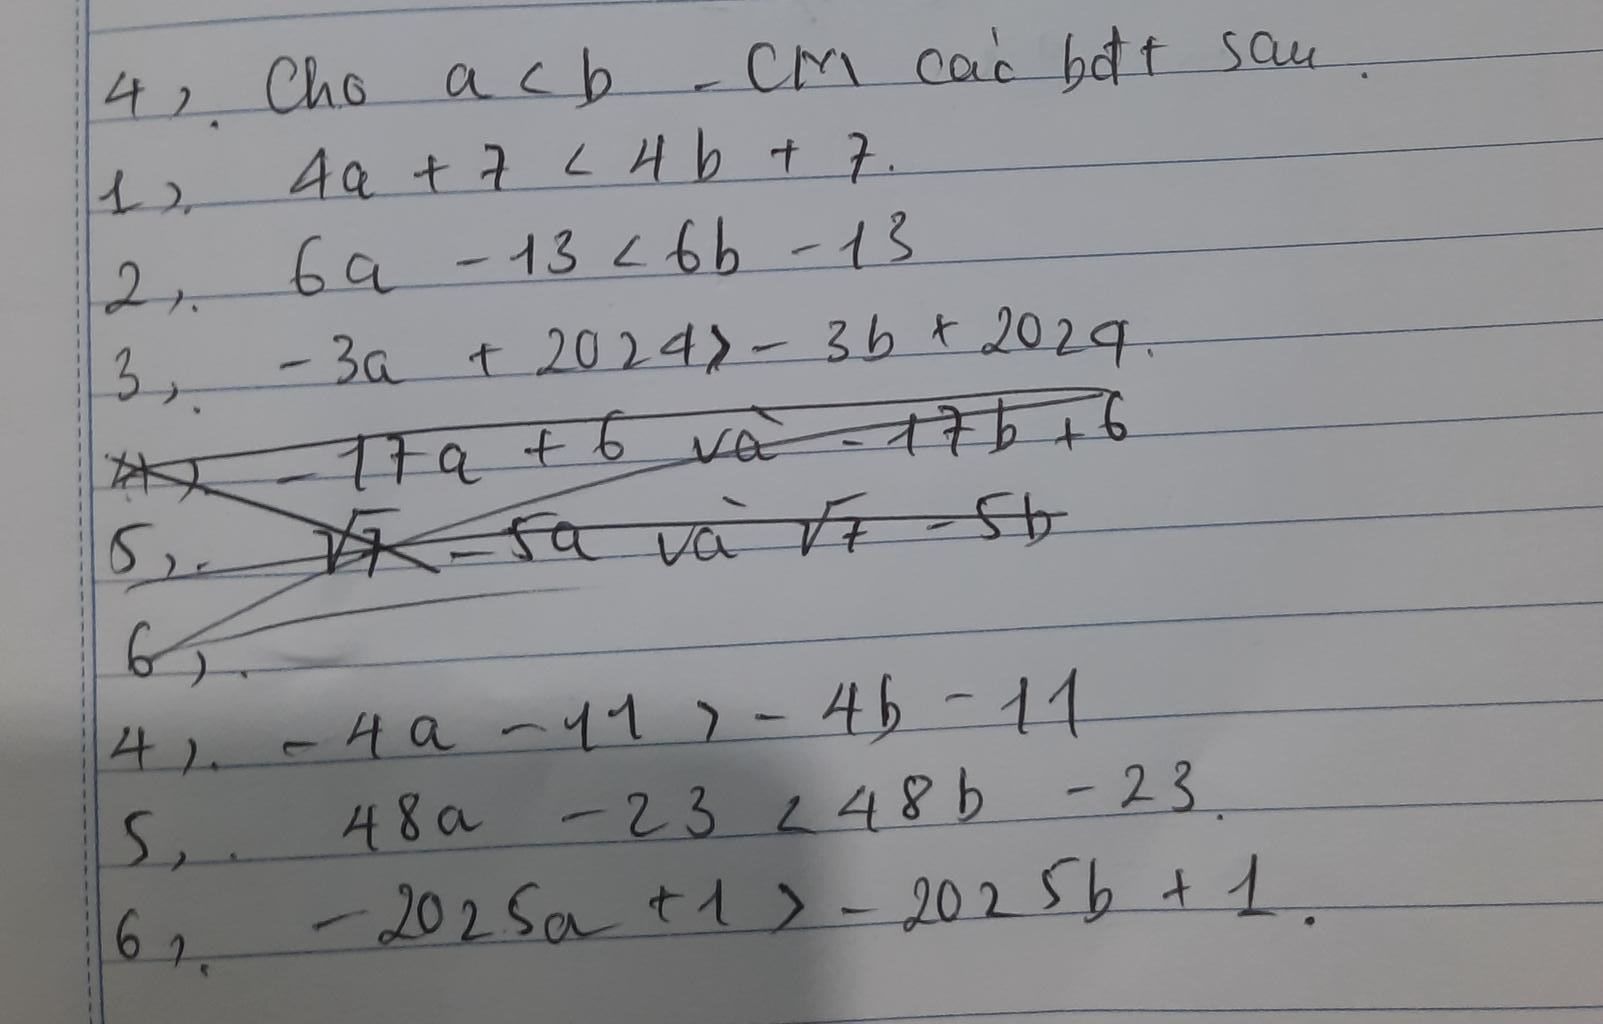 4, Cho a < b - CM các bđt sau.
1, 4a + 7 < 4b + 7.
2, 6a - 13 < 6b - 13
3, - 3a + 2024 > - 3b + 2024.
4, - 17a + 6 và - 17b + 6
5, √7 - 5a và √7 - 5b
6,
4, - 4a - 11 > - 4b - 11
5, 48a - 23 < 48b - 23.
6, - 2025a + 1 > - 2025b + 1.